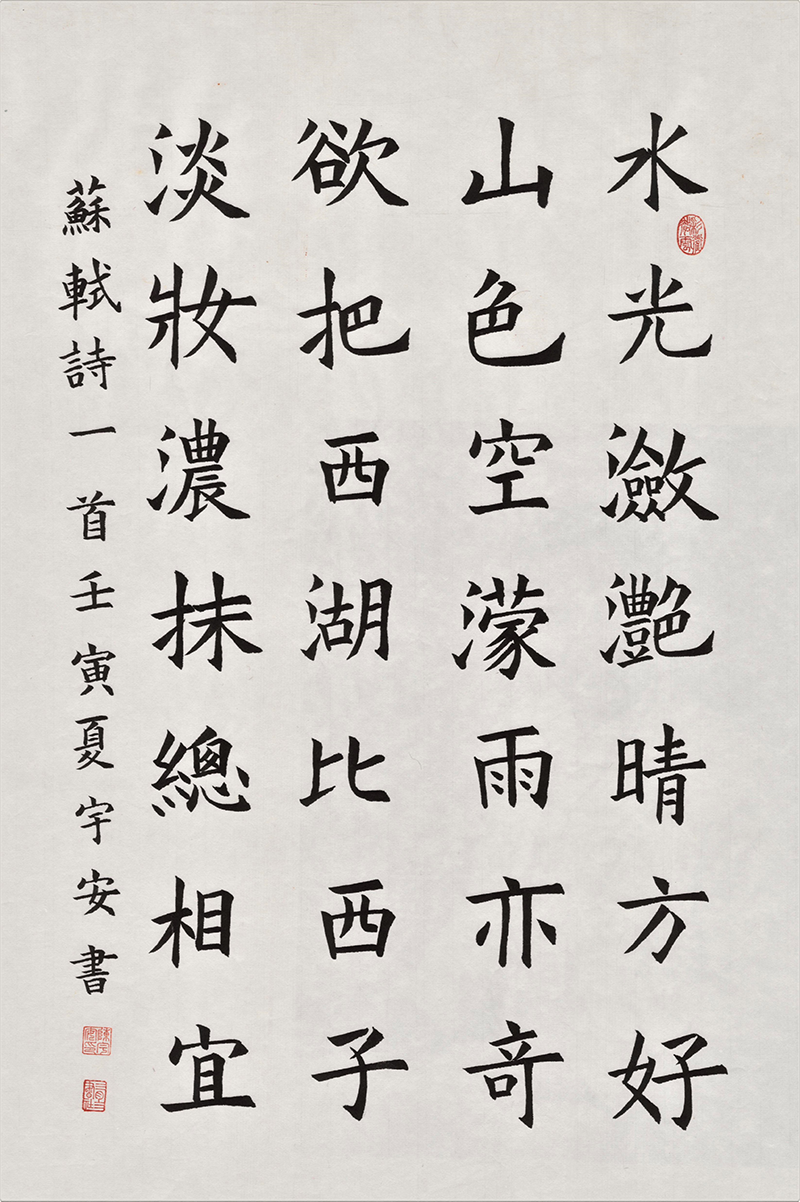 水光瀲灩晴方好
山色空濛雨亦奇
欲把西湖比西子
淡妝濃抹總相宜
蘇軾詩一首壬寅夏宇安書